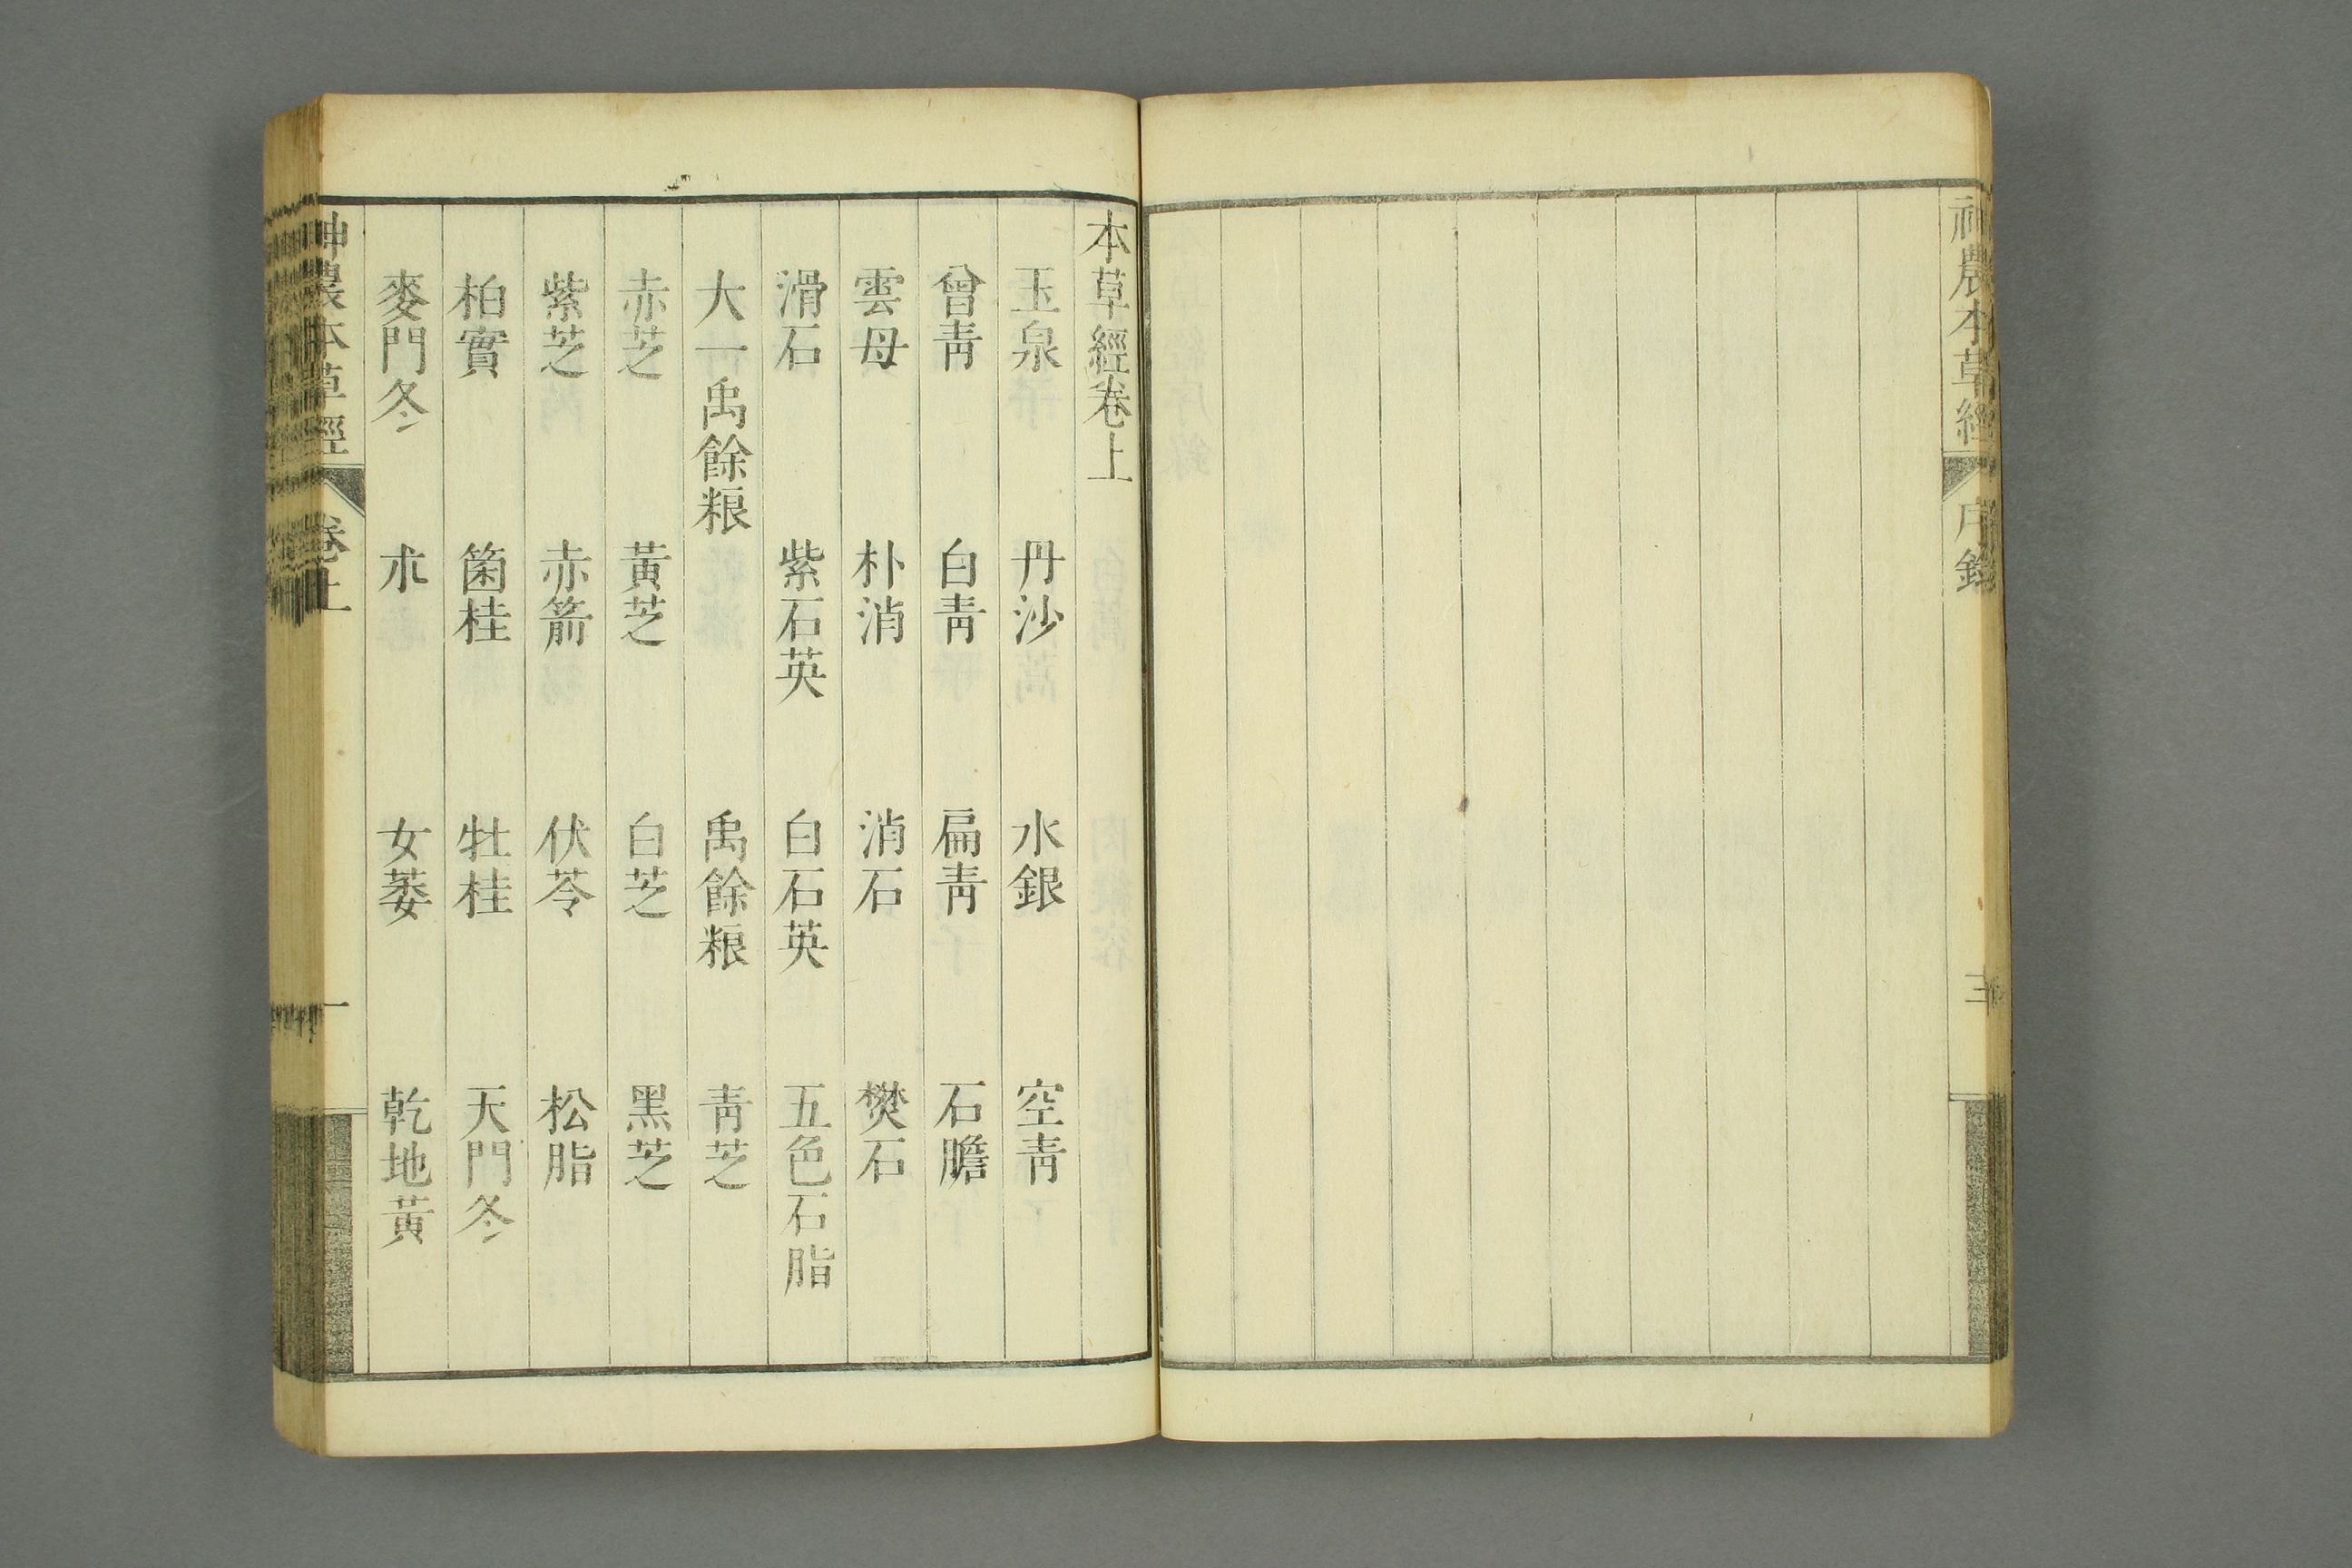 神農本草經
序錄
三
本草經卷上
玉泉　丹沙　水銀　空青
曾青　白青　扁青　石膽
雲母　朴消　消石　樊石
滑石　紫石英　白石英　五色石脂
大一禹餘粮　禹餘粮　青芝
赤芝　黃芝　白芝　黑芝
紫芝　赤箭　伏苓　松脂
柏實　箘桂　牡桂　天門冬
麥門冬　朮　女萎　乾地黃
神農本草經
卷上
一